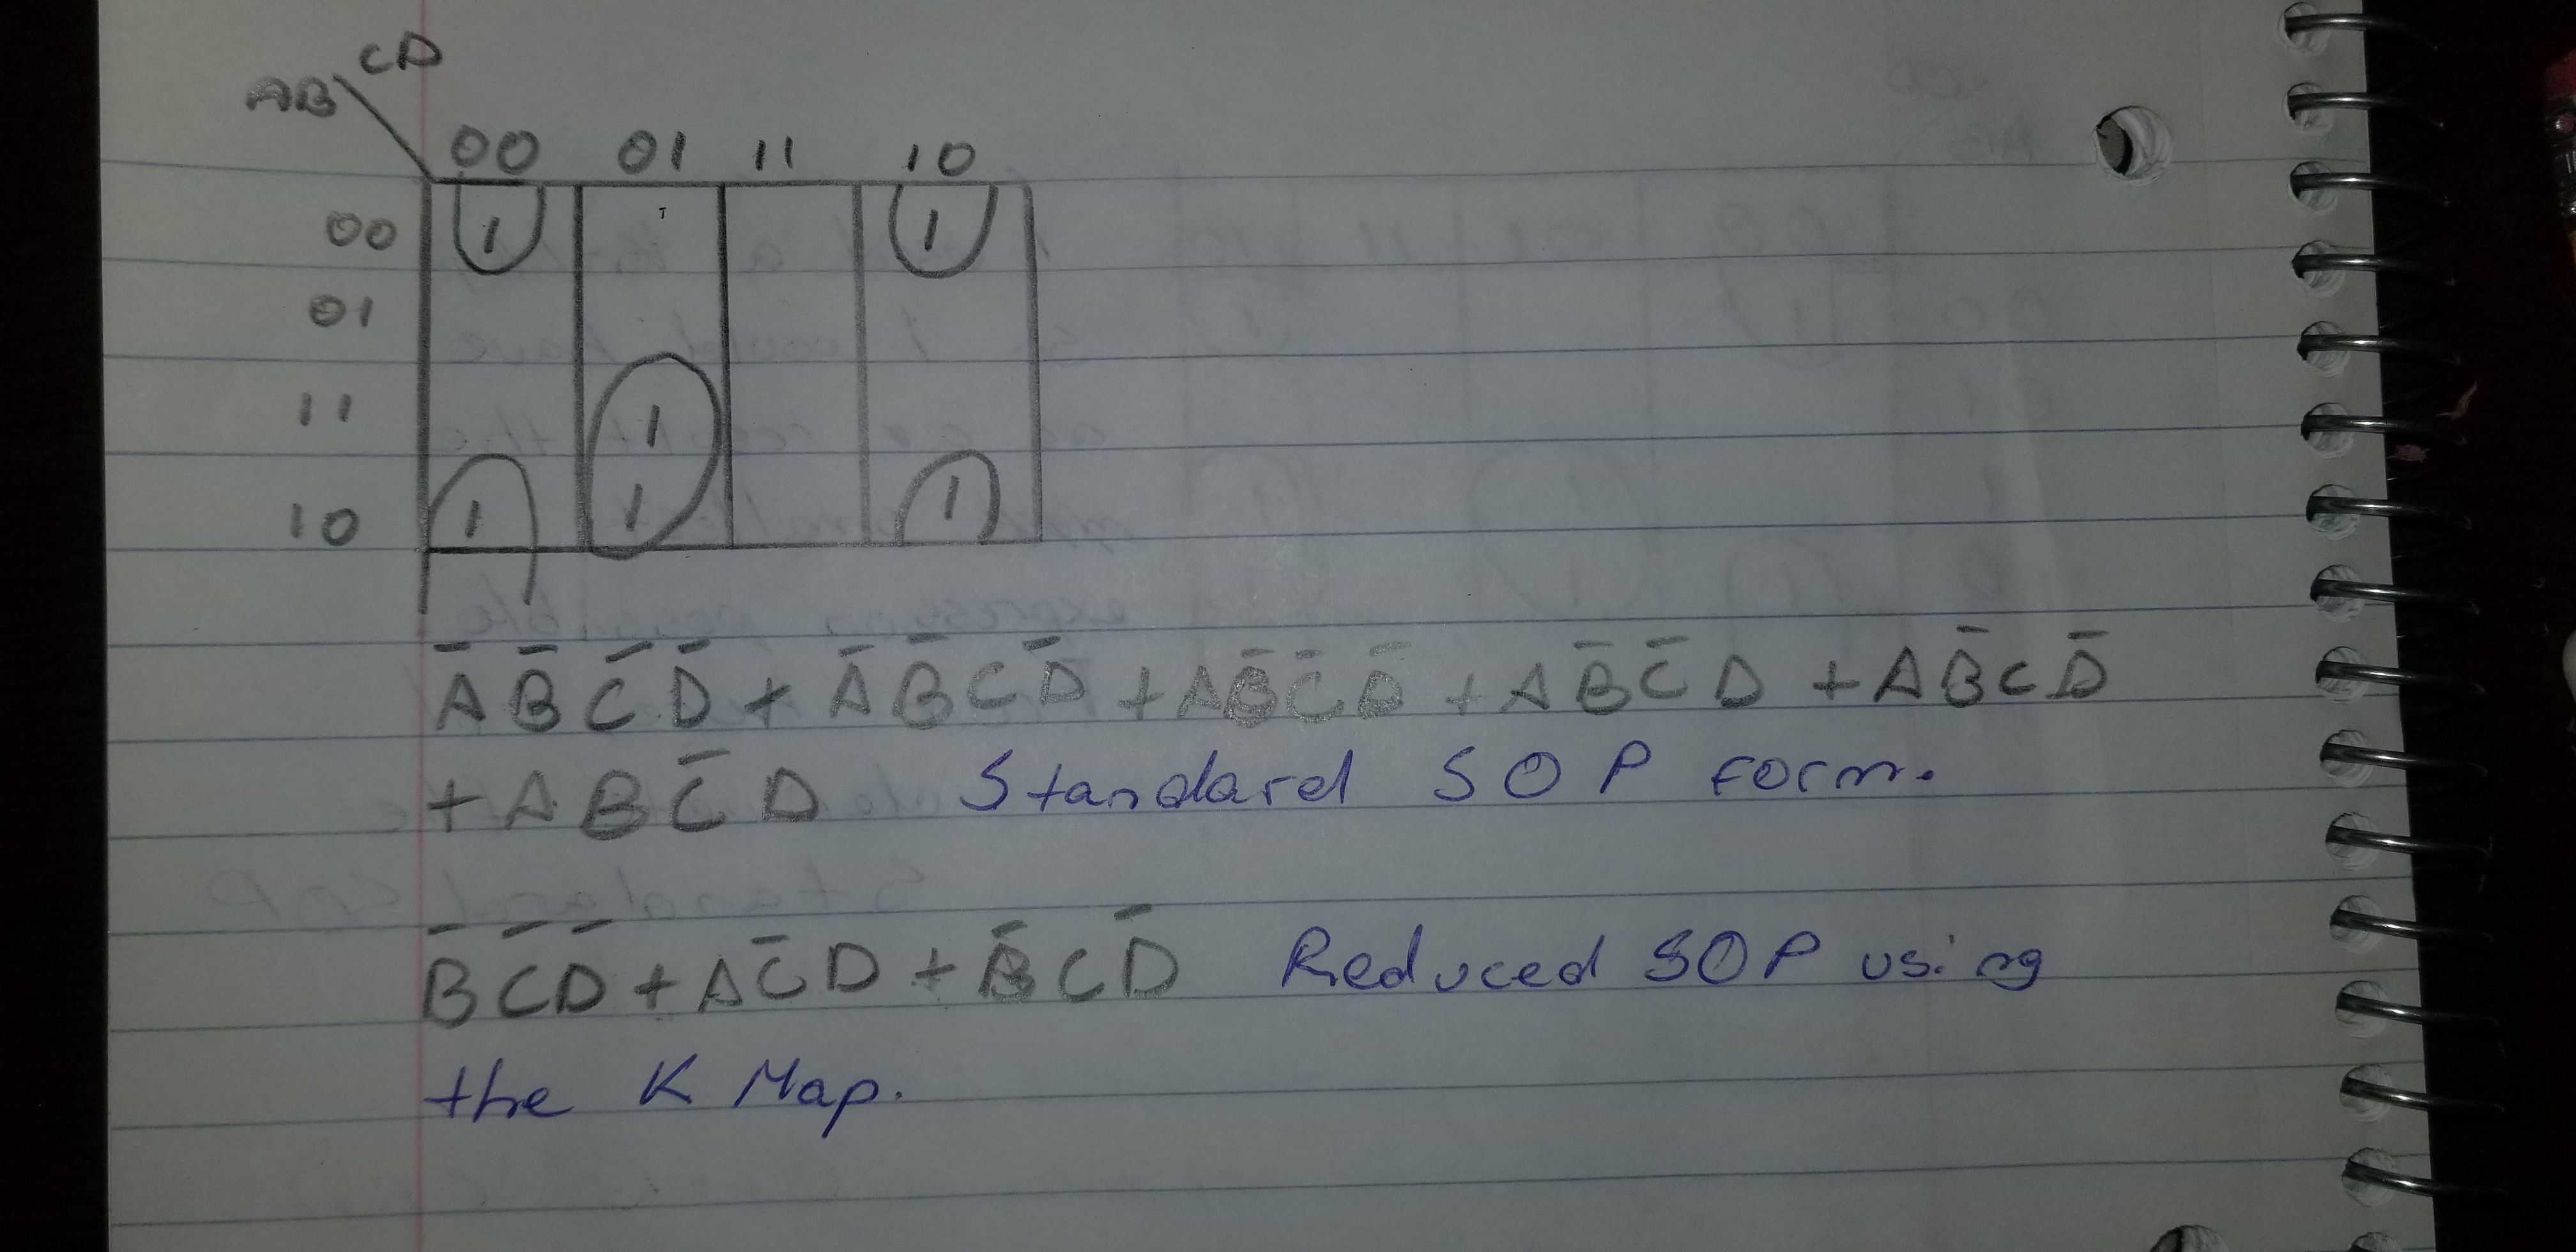 CD
AB
00 01 11 10
00 1 1
01
11 1
10 1 1 1
A̅ B̅ C̅ D̅ + A̅ B̅ C D̅ + A B̅ C̅ D̅ + A B̅ C̅ D + A B̅ C D̅
+ A B C̅ D Standard SOP form.
B̅ C̅ D̅ + A C̅ D + B̅ C D̅ Reduced SOP using
the K Map.